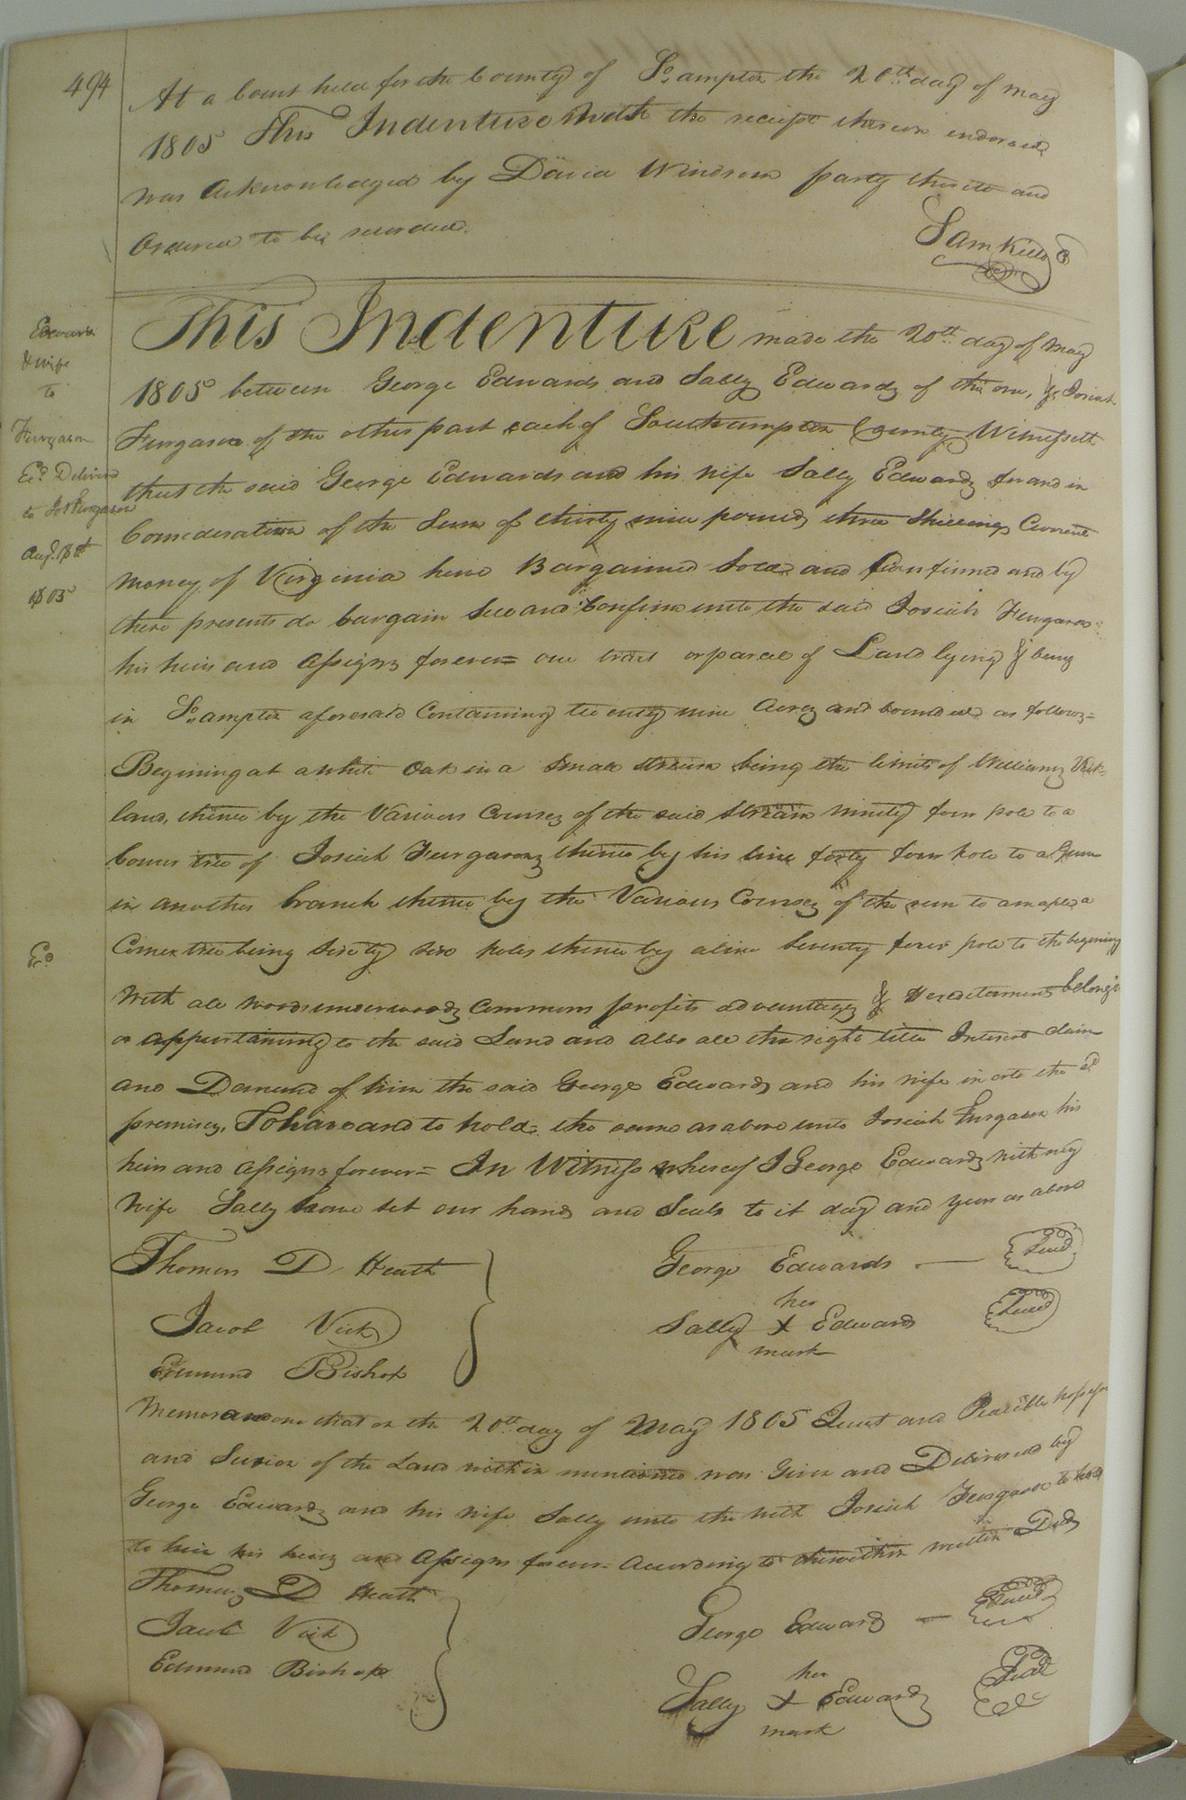 494
At a Court held for the County of So,,ampton the 20th day of May
1805 This Indenture with the receipt thereon endorsed
was Acknowledged by David Windrom party thereto and
Ordered to be recorded.
Sam Kello C
Edwards
& wife
to
Furgason
Exd Delivered
to Jos Furgason
Augt 18th
1805
This Indenture made the 20th day of May
1805 between George Edwards and Sally Edwards of the one, & Josiah
Furgason of the other part each of Southampton County Witnesseth
that the said George Edwards and his wife Sally Edwards for and in
Consideration of the Sum of thirty nine pounds three Shillings Current
money of Virginia have Bargained Sold and Confirmed and by
these presents do bargain Sell and Confirm unto the said Josiah Furgason
his heirs and Assigns forever= one tract or parcel of Land lying & being
in So,,ampton aforesaid Containing twenty nine Acres and bounded as follows=
Begining at a white Oak in a Small stream being the limits of Williams Vick
land, thence by the Various Courses of the said stream ninety four pole to a
Corner tree of Josiah Furgasons thence by his line forty four pole to a Gum
in another branch thence by the Various Courses of the run to a maple a
Corner tree being Sixty six poles thence by a line Seventy four pole to the begining
Exd
With all woods underwoods Commons profits advantages & Hereditaments belongin
or appertaining to the said Land and also all the right title Interest claim
and Demand of him the said George Edwards and his wife in orto the sd
premises, To have and to hold= the same as above unto Josiah Furgason his
heirs and assigns forever= In Witness whereof I George Edwards with my
Wife Sally have set our hands and Seals to it day and year as above
Thomas D Heath George Edwards — Seal
her
Jacob Vick Sally X Edwards Seal
mark
Edmund Bishop
Memorandum that on the 20th day of May 1805 Quiet and Peacible possession
and Seision of the Land within mentioned was Given and Delivered by
George Edwards and his wife Sally unto the with Josiah Furgason to hold
to him his heirs and Assigns forever according to the within written Deeds
Thomas D Heath
George Edwards — Seal
Jacob Vick
Edmund Bishop
her
Sally X Edwards Seal
mark